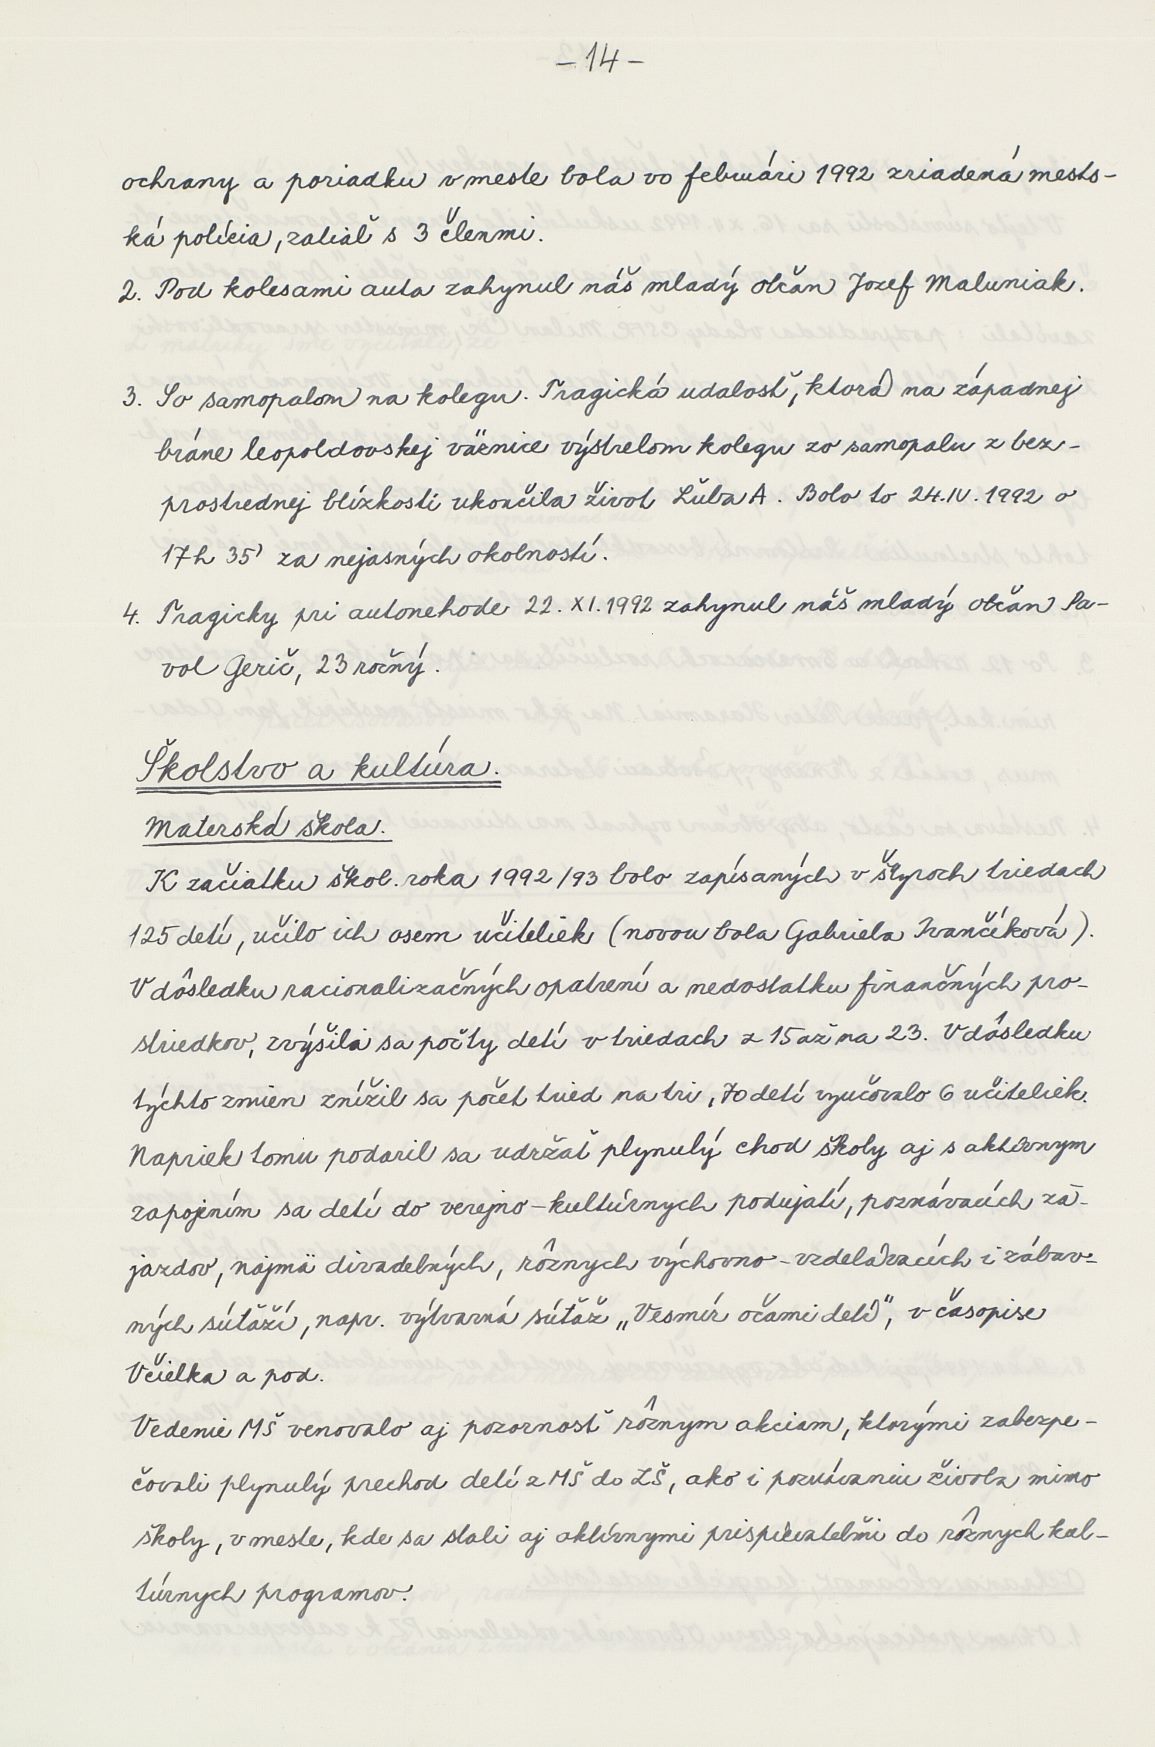 - 14 -
ochrany a poriadku v meste bola vo februári 1992 zriadená mests-
ká polícia, zatiaľ s 3 členmi.
2. Pod kolesami auta zahynul náš mladý občan Jozef Maluniak.
3. So samopalom na kolegu. Tragická udalosť, ktorá na západnej
bráne leopoldovskej väznice výstrelom kolegu zo samopalu z bez-
prostrednej blízkosti ukončila život Ľuba A. Bolo to 24.IV.1992 o
17h 35' za nejasných okolností.
4. Tragicky pri autonehode 22. XI. 1992 zahynul náš mladý občan Pa-
vol Gerič, 23 ročný.
Školstvo a kultúra.
Materská škola.
K začiatku škol. roka 1992/93 bolo zapísaných v štyroch triedach
125 detí, učilo ich osem učiteliek (novou bola Gabriela Ivančíková).
V dôsledku racionalizačných opatrení a nedostatku finančných pro-
striedkov, zvýšila sa počty detí v triedach z 15 až na 23. V dôsledku
týchto zmien znížil sa počet tried na tri, 70 detí vyučovalo 6 učiteliek.
Napriek tomu podaril sa udržať plynulý chod školy aj s aktívnym
zapojením sa detí do verejno-kultúrnych podujatí, poznávacích zá-
jazdov, najmä divadelných, rôznych výchovno-vzdelávacích i zábav-
ných súťaží, napr. výtvarná súťaž „Vesmír očami detí", v časopise
Včielka a pod.
Vedenie MŠ venovalo aj pozornosť rôznym akciam, ktorými zabezpe-
čovali plynulý prechod detí z MŠ do ZŠ, ako i poznávaniu života mimo
školy, v meste, kde sa stali aj aktívnymi prispievateľmi do rôznych kul-
túrnych programov.